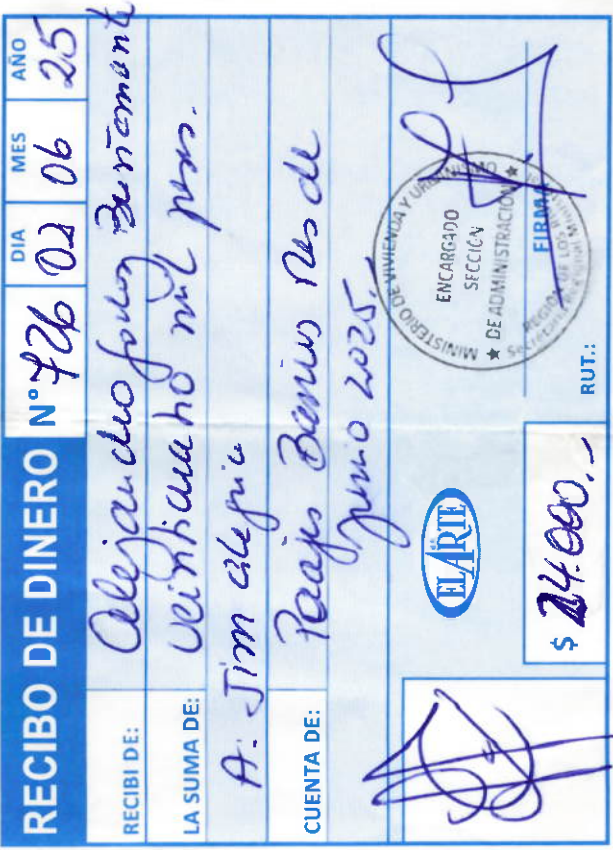 RECIBO DE DINERO N° 726
DIA MES AÑO
02 06 25
RECIBI DE: Alejandro
LA SUMA DE: Veinticuatro mil pesos.
A: Jim Alegria
CUENTA DE: Pasajes Barrios Mes de
Junio 2025.-
EL ARTE
$ 24.000.-
MINISTERIO DE VIVIENDA Y URBANISMO
ENCARGADO
SECCIÓN
★ DE ADMINISTRACION ★
REGION DE LOS
FIRMA
RUT.: